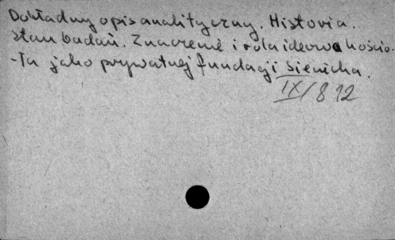 Dokładny opis analityczny. Historia.
Stan badań. Znaczenie i rola ideowa kościo-
-ła jako prywatnej fundacji Sienicha.
IX/812